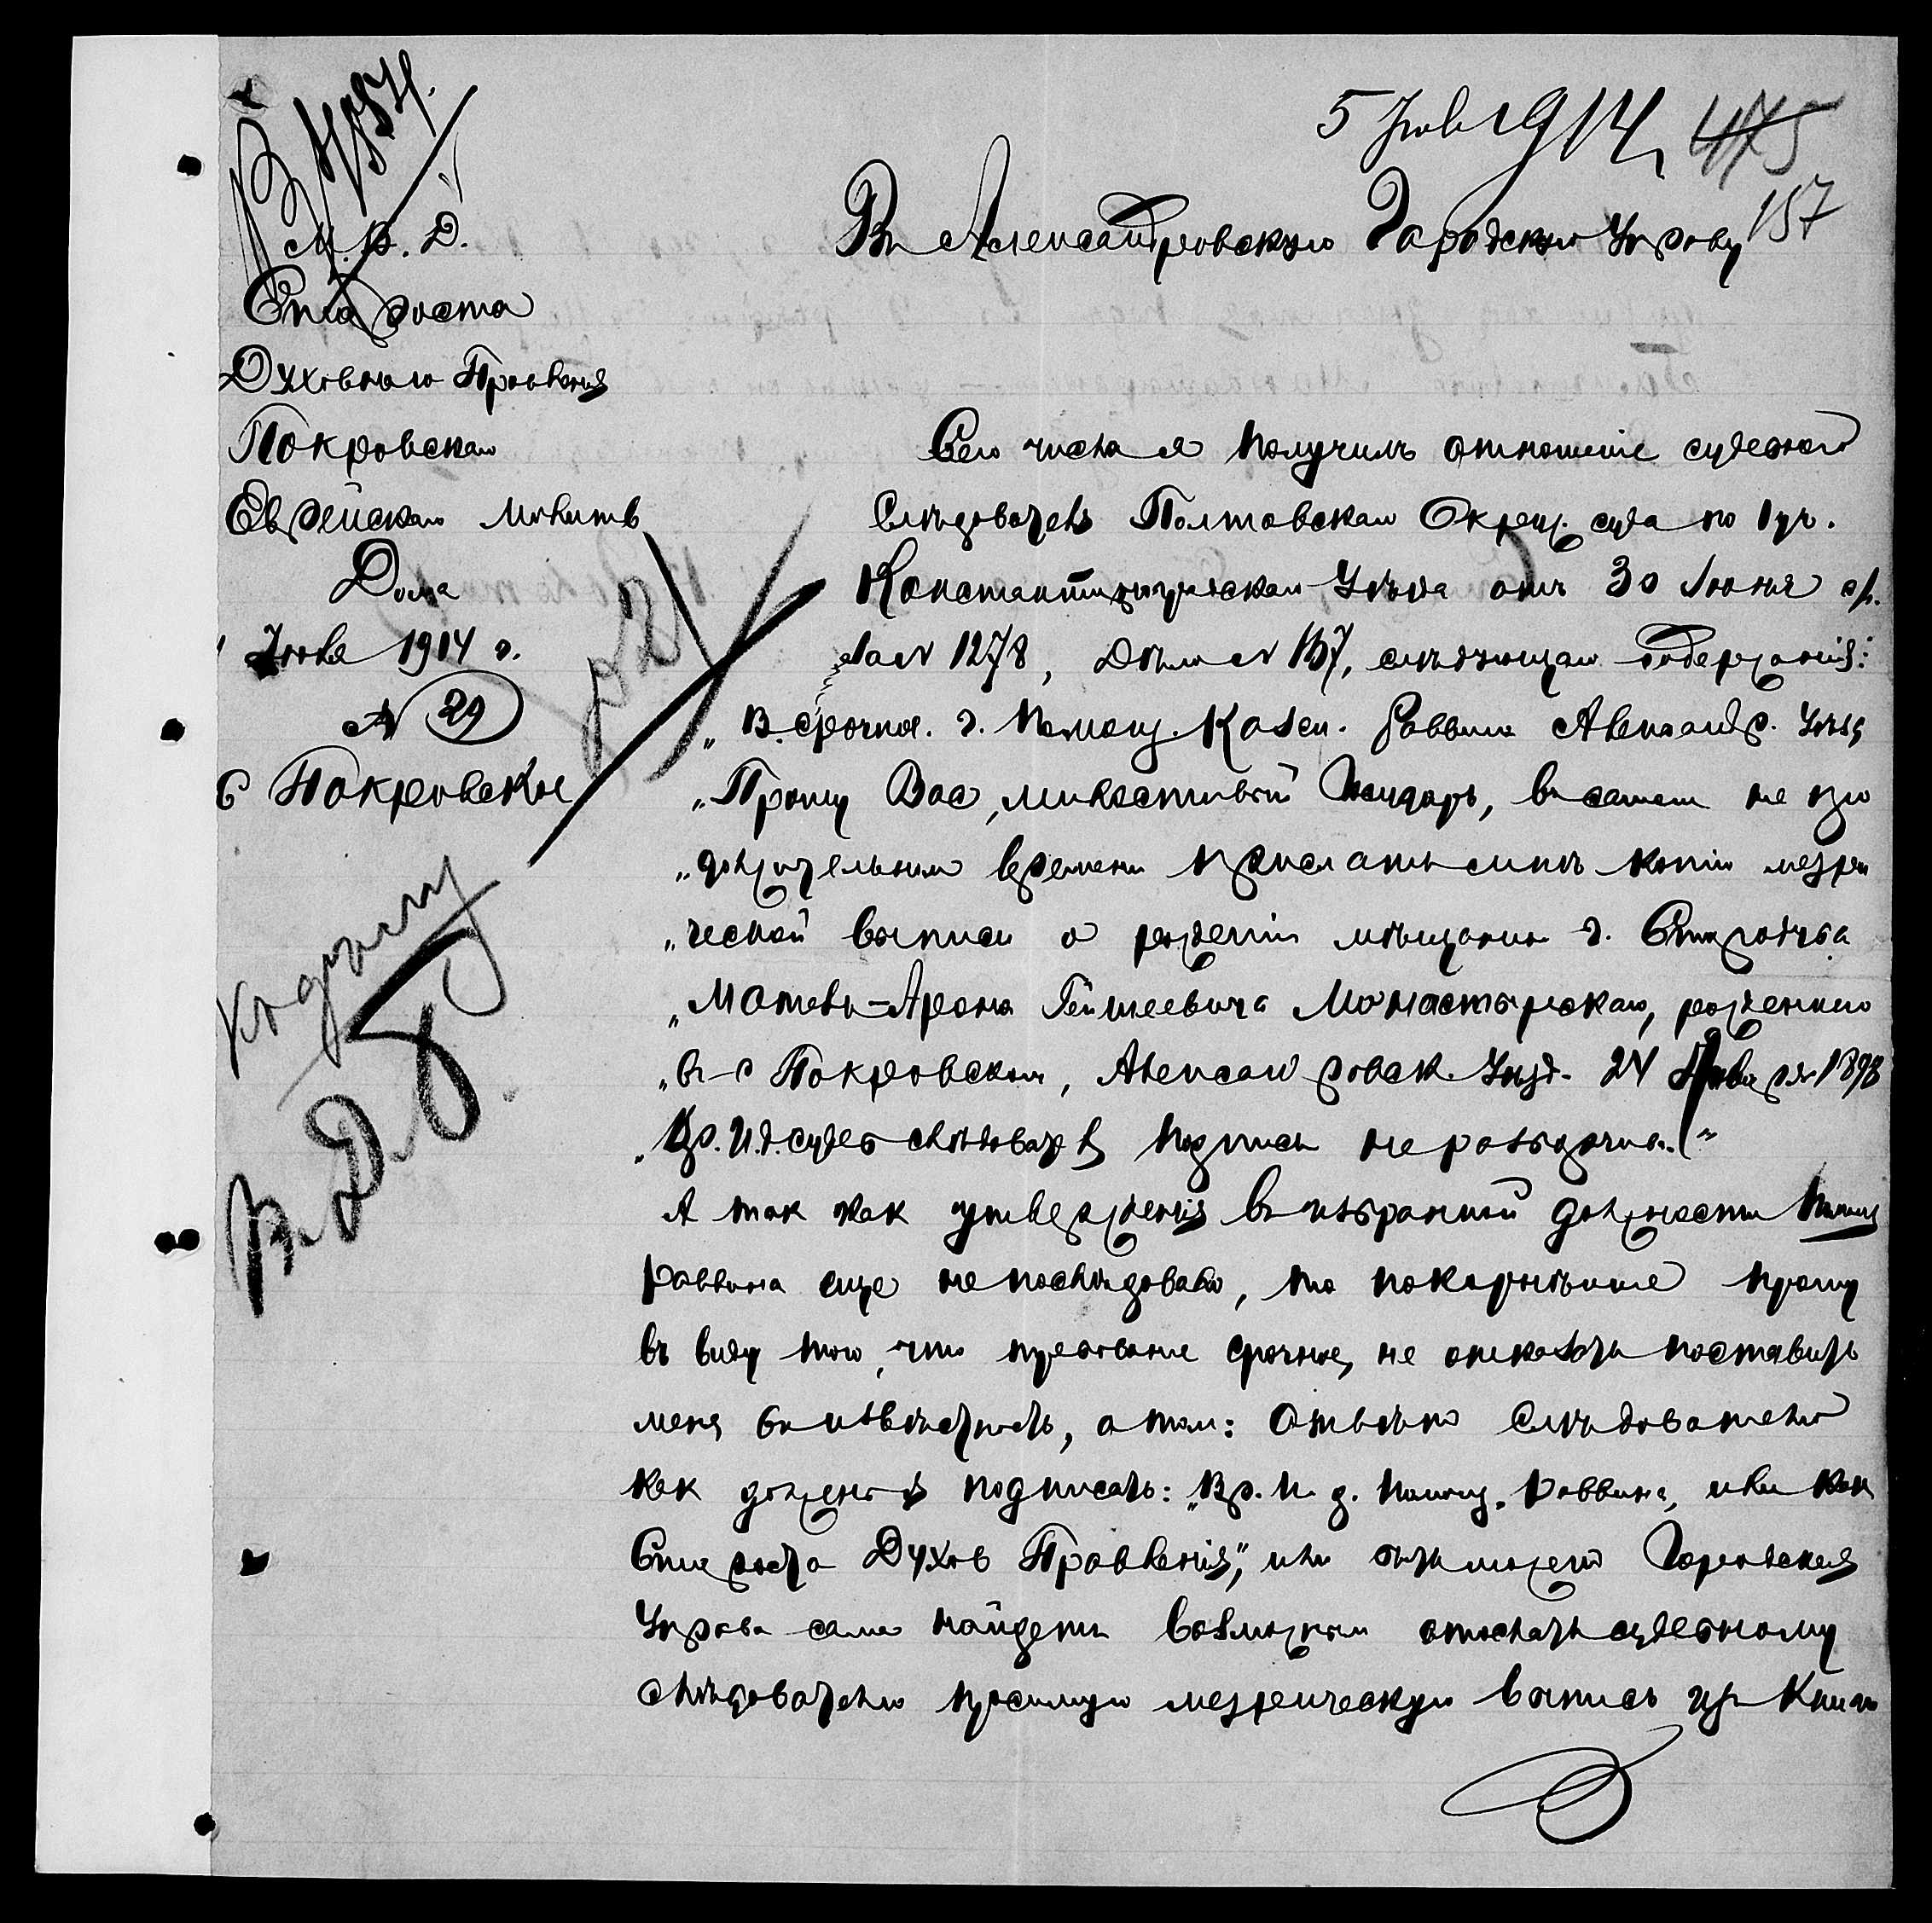 5 Июля 1914 475
157
Въ Александровскую Городскую Управу
М. В. Д.
Староста
Духовнаго Правленія
Покровскаго
Еврейскаго Молитв
Дома
Июля 1914 г.
№ 29
с Покровское
Сего числа я получилъ отношеніе судебнаго
Слѣдователя Полтавскаго Окружн. суда по 1 уч.
Константиноградскаго Уѣзда отъ 30 Июня с/г.
за № 1278, дѣло № 137, слѣдующаго содержанія:
„В. срочное. г. Помощ. Казен. Раввина Александр. Уѣзд
„Прошу Вас, милостивый Государь, въ самом не про
„должительном времени прислать мнѣ копію метри
„ческой выписи о рожденіи мѣщанина г.
„Мотеля-Арона Гейшеевича Монастырскаго, рожденнаго
„въ с Покровском, Александровск. Уѣзд. 24 Января 1898
„Вр. И.д. судеб слѣдователя подпись неразборчива.“
А так как утвержденія въ избранной должности Помощ
Раввина еще не послѣдовало, то покорнѣйше прошу
въ виду того, что требование срочное, не отказать поставить
меня въ извѣстность, о том: Отвѣтъ Слѣдователю
как должен я подписать: „Вр. И. д. Помощ. Раввина, или как
Староста Духов Правленія“, или быть может Городская
Управа сама найдетъ возможным отослать судебному
слѣдователю просимую метрическую выпись из Книги